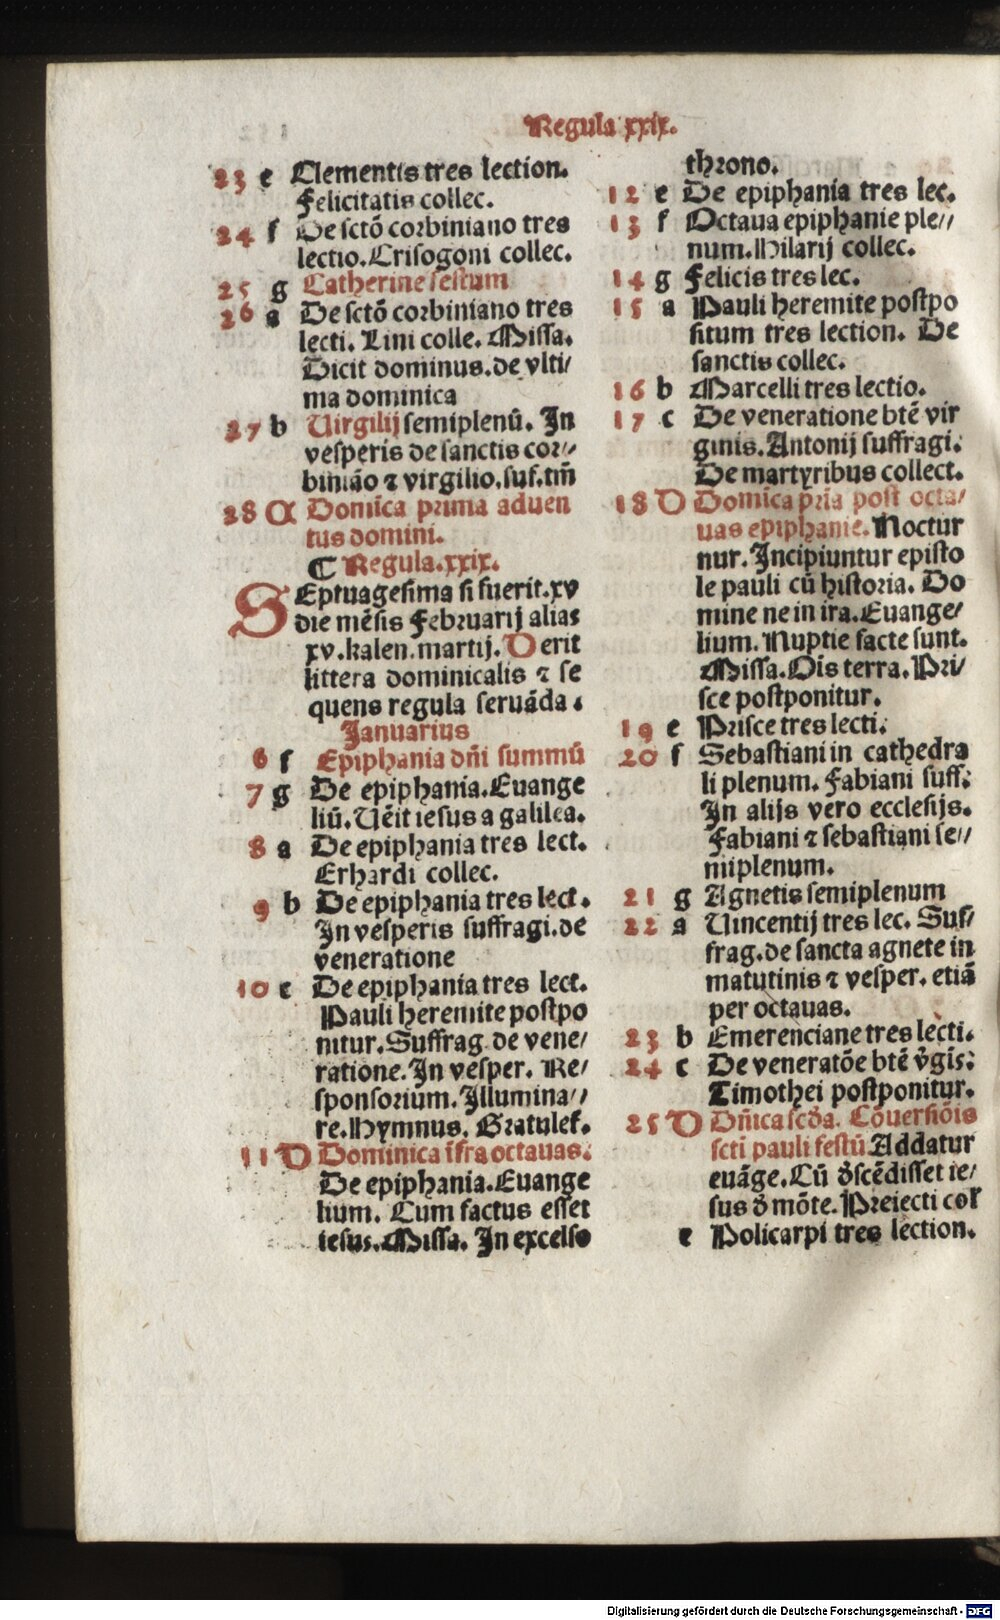 Regula xxix.
23 e Clementis tres lection.
Felicitatis collec.
24 f De sctō corbiniano tres
lectio. Crisogoni collec.
25 g Catherine festum
26 a De sctō corbiniano tres
lecti. Lini colle. Missa.
Dicit dominus. de vlti/
ma dominica
27 b Uirgilij semiplenū. In
vesperis de sanctis cor//
biniāo ⁊ virgilio. suf. tm̄
28 A Domīca prima aduen
tus domini.
¶ Regula. xxix.
SEptuagesima si fuerit. xv
die mēsis Februarij alias
xv. kalen. martij. D erit
littera dominicalis ⁊ se
quens regula seruāda.
Januarius
6 f Epiphania dn̄i summū
7 g De epiphania. Euange
liū. Uēit iesus a galilea.
8 a De epiphania tres lect.
Erhardi collec.
9 b De epiphania tres lect.
In vesperis suffragi. de
veneratione
10 c De epiphania tres lect.
Pauli heremite postpo
nitur. Suffrag de vene/
ratione. In vesper. Re/
sponsorium. Illumina//
re. Hymnus. Gratulet.
11 D Dominica īfra octauas.
De epiphania. Euange
lium. Cum factus esset
iesus. Missa. In excelso
throno.
12 e De epiphania tres lec.
13 f Octaua epiphanie ple//
num. Hilarij collec.
14 g Felicis tres lec.
15 a Pauli heremite postpo
situm tres lection. De
sanctis collec.
16 b Marcelli tres lectio.
17 c De veneratione btē vir
ginis. Antonij suffragi.
De martyribus collect.
18 D Domīca pr̄ia post octa/
uas epiphanie. Noctur
nur. Incipiuntur episto
le pauli cū historia. Do
mine ne in ira. Euange/
lium. Nuptie facte sunt.
Missa. Oīs terra. Pri/
sce postponitur.
19 e Prisce tres lecti.
20 f Sebastiani in cathedra
li plenum. Fabiani suff.
In alijs vero ecclesijs.
Fabiani ⁊ sebastiani se//
miplenum.
21 g Agnetis semiplenum
22 a Uincentij tres lec. Suf/
frag. de sancta agnete in
matutinis ⁊ vesper. etiā
per octauas.
23 b Emerenciane tres lecti.
24 c De veneratōe btē v̄gis.
Timothei postponitur.
25 D Dn̄ica scd̄a. Cōuersiōis
scti pauli festū Addatur
euāge. Cū d̄scēdisset ie/
sus d̄ mōte. Preiecti col
e Policarpi tres lection.
Digitalisierung gefördert durch die Deutsche Forschungsgemeinschaft - DFG